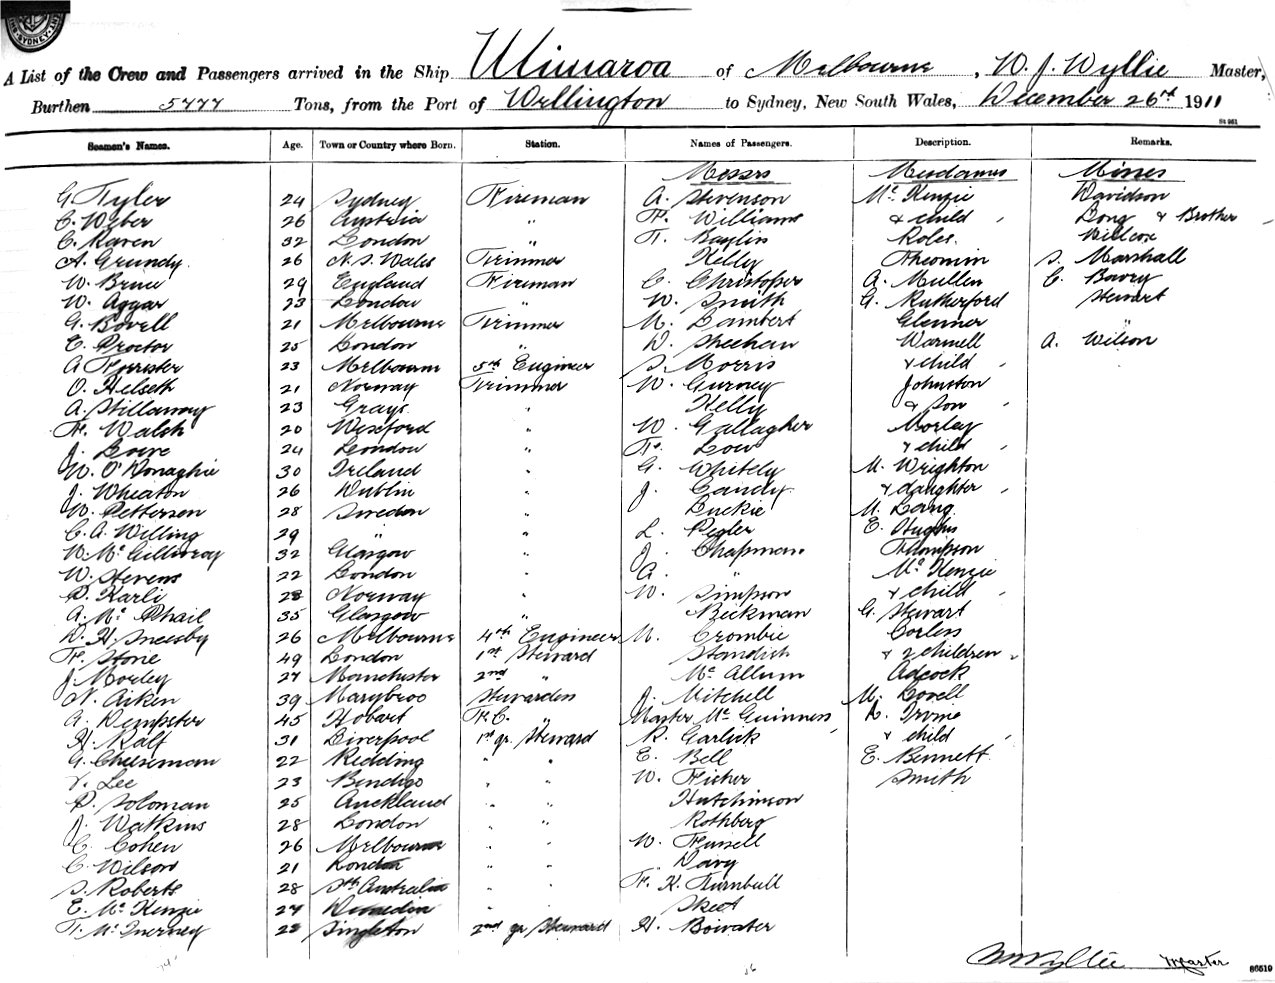 SYDNEY
A List of the Crew and Passengers arrived in the Ship Ulimaroa of Melbourne, W. J. Wyllie Master,
Burthen 5777 Tons, from the Port of Wellington to Sydney, New South Wales, December 26th 1911
St 951
Seamen's Names. Age. Town or Country where Born. Station. Names of Passengers. Description. Remarks.
Messrs Mesdames Misses
G. Tyler 24 Sydney Fireman A. Stevenson Mc Kenzie Davidson
C. Weber 26 Austria " F. Williams & child Long & Brother
C. Raven 32 London " F. Baylis Roles Willcox
A. Grundy 26 N.S. Wales Trimmer Kelly Theomin S. Marshall
W. Bruce 29 England Fireman C. Christopher A. Mullen C. Bavry
W. Aggar 23 London " W. Smith G. Rutherford Stewart
G. Bovell 21 Melbourne Trimmer M. Lambert Glenner "
E. Proctor 25 London " D. Sheehan Warnell A. Wilson
A Forrister 23 Melbourne 5th Engineer S. Morris & child
O. Helseth 21 Norway Trimmer W. Gurney Johnston
A. Stillaway 23 Grays " Kelly & Son
F. Walsh 20 Wexford " W. Gallagher Morley
J. Lowe 24 London " F. Low & child
W. O'Donaghie 30 Ireland " G. Whitely M. Wrighton
J. Wheaton 26 Dublin " J. Candy & daughter
W. Petterson 28 Sweden " Luckie M. Long
C. A. Willing 29 " " L. Pegler E. Hughes
W. Mc Gillivray 32 Glasgow " J. Chapman Thompson
W. Stevens 22 London " A. " Mc Kenzie
P. Karli 28 Norway " W. Simpson & child
A. Mc Phail 35 Glasgow " Beckman G. Stewart
D. H. Sneesby 26 Melbourne 4th Engineer M. Crombie Corless
F. Stone 49 London 1st Steward Standish & 2 children
J. Morley 27 Manchester 2nd " Mc Allum Adcock
N. Aiken 39 Marybroo Stewardess J. Mitchell M. Lovell
A. Dempster 45 Hobart F. C. " Master Mc Guinness L. Irvine
H. Ralf 31 Liverpool 1st gr. Steward R. Garlick & child
G. Cheeseman 22 Redding " " E. Bell E. Bennett
V. Lee 23 Bendigo " " W. Fisher Smith
P. Soloman 25 Auckland " " Hutchinson
J. Watkins 28 London " " Rothberg
C. Cohen 26 Melbourne " " W. Fussell
C. Wilson 21 London " " Davy
S. Roberts 28 Sth Australia " " F. K. Turnbull
E. Mc Kenzie 27 Dunedin " " Skeet
F. Mc Inerney 22 Singleton 2nd gr Steward H. Bowater
W Wyllie Master
86519